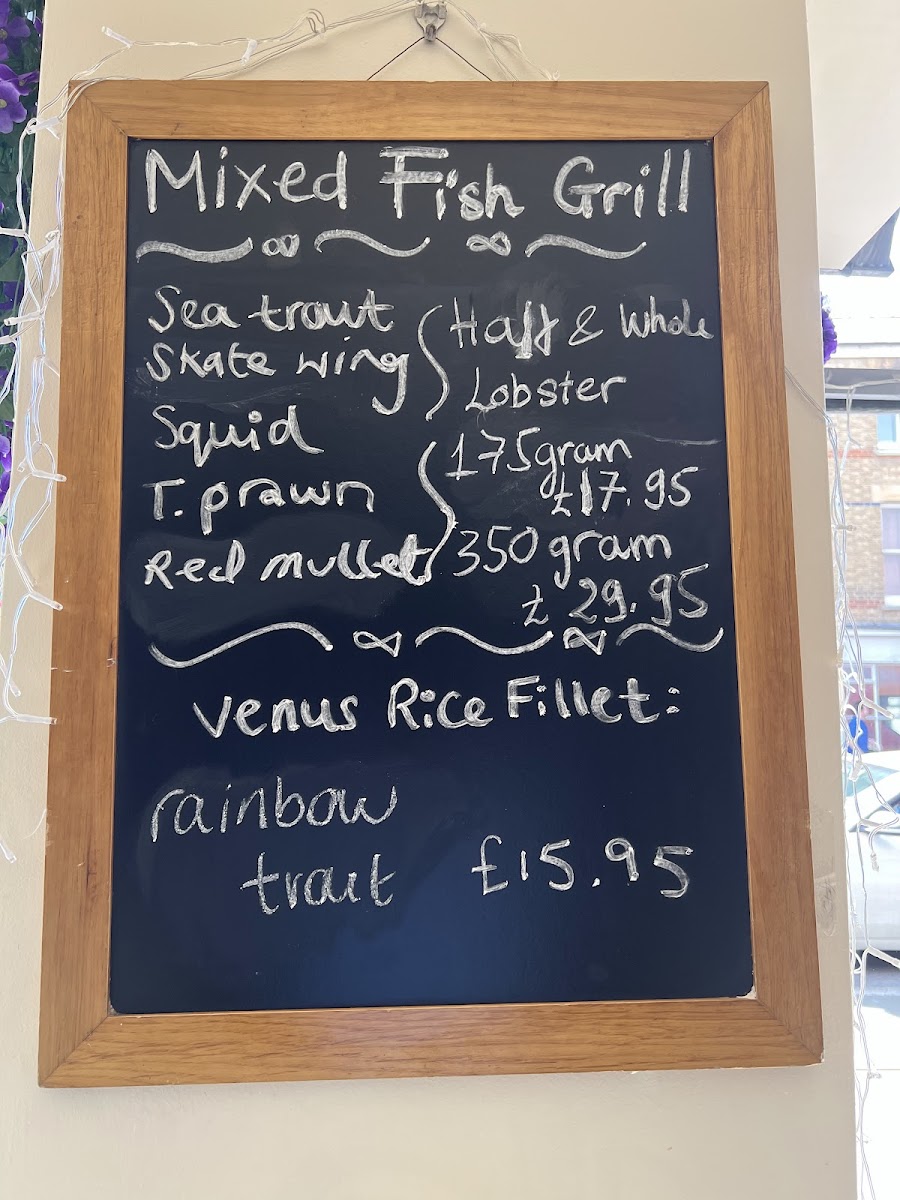 Mixed Fish Grill
Sea trout
Skate wing
Squid
T. prawn
Red mullet
Half & Whole
Lobster
175gram
£17.95
350 gram
£ 29.95
Venus Rice Fillet:
rainbow
trout
£15.95